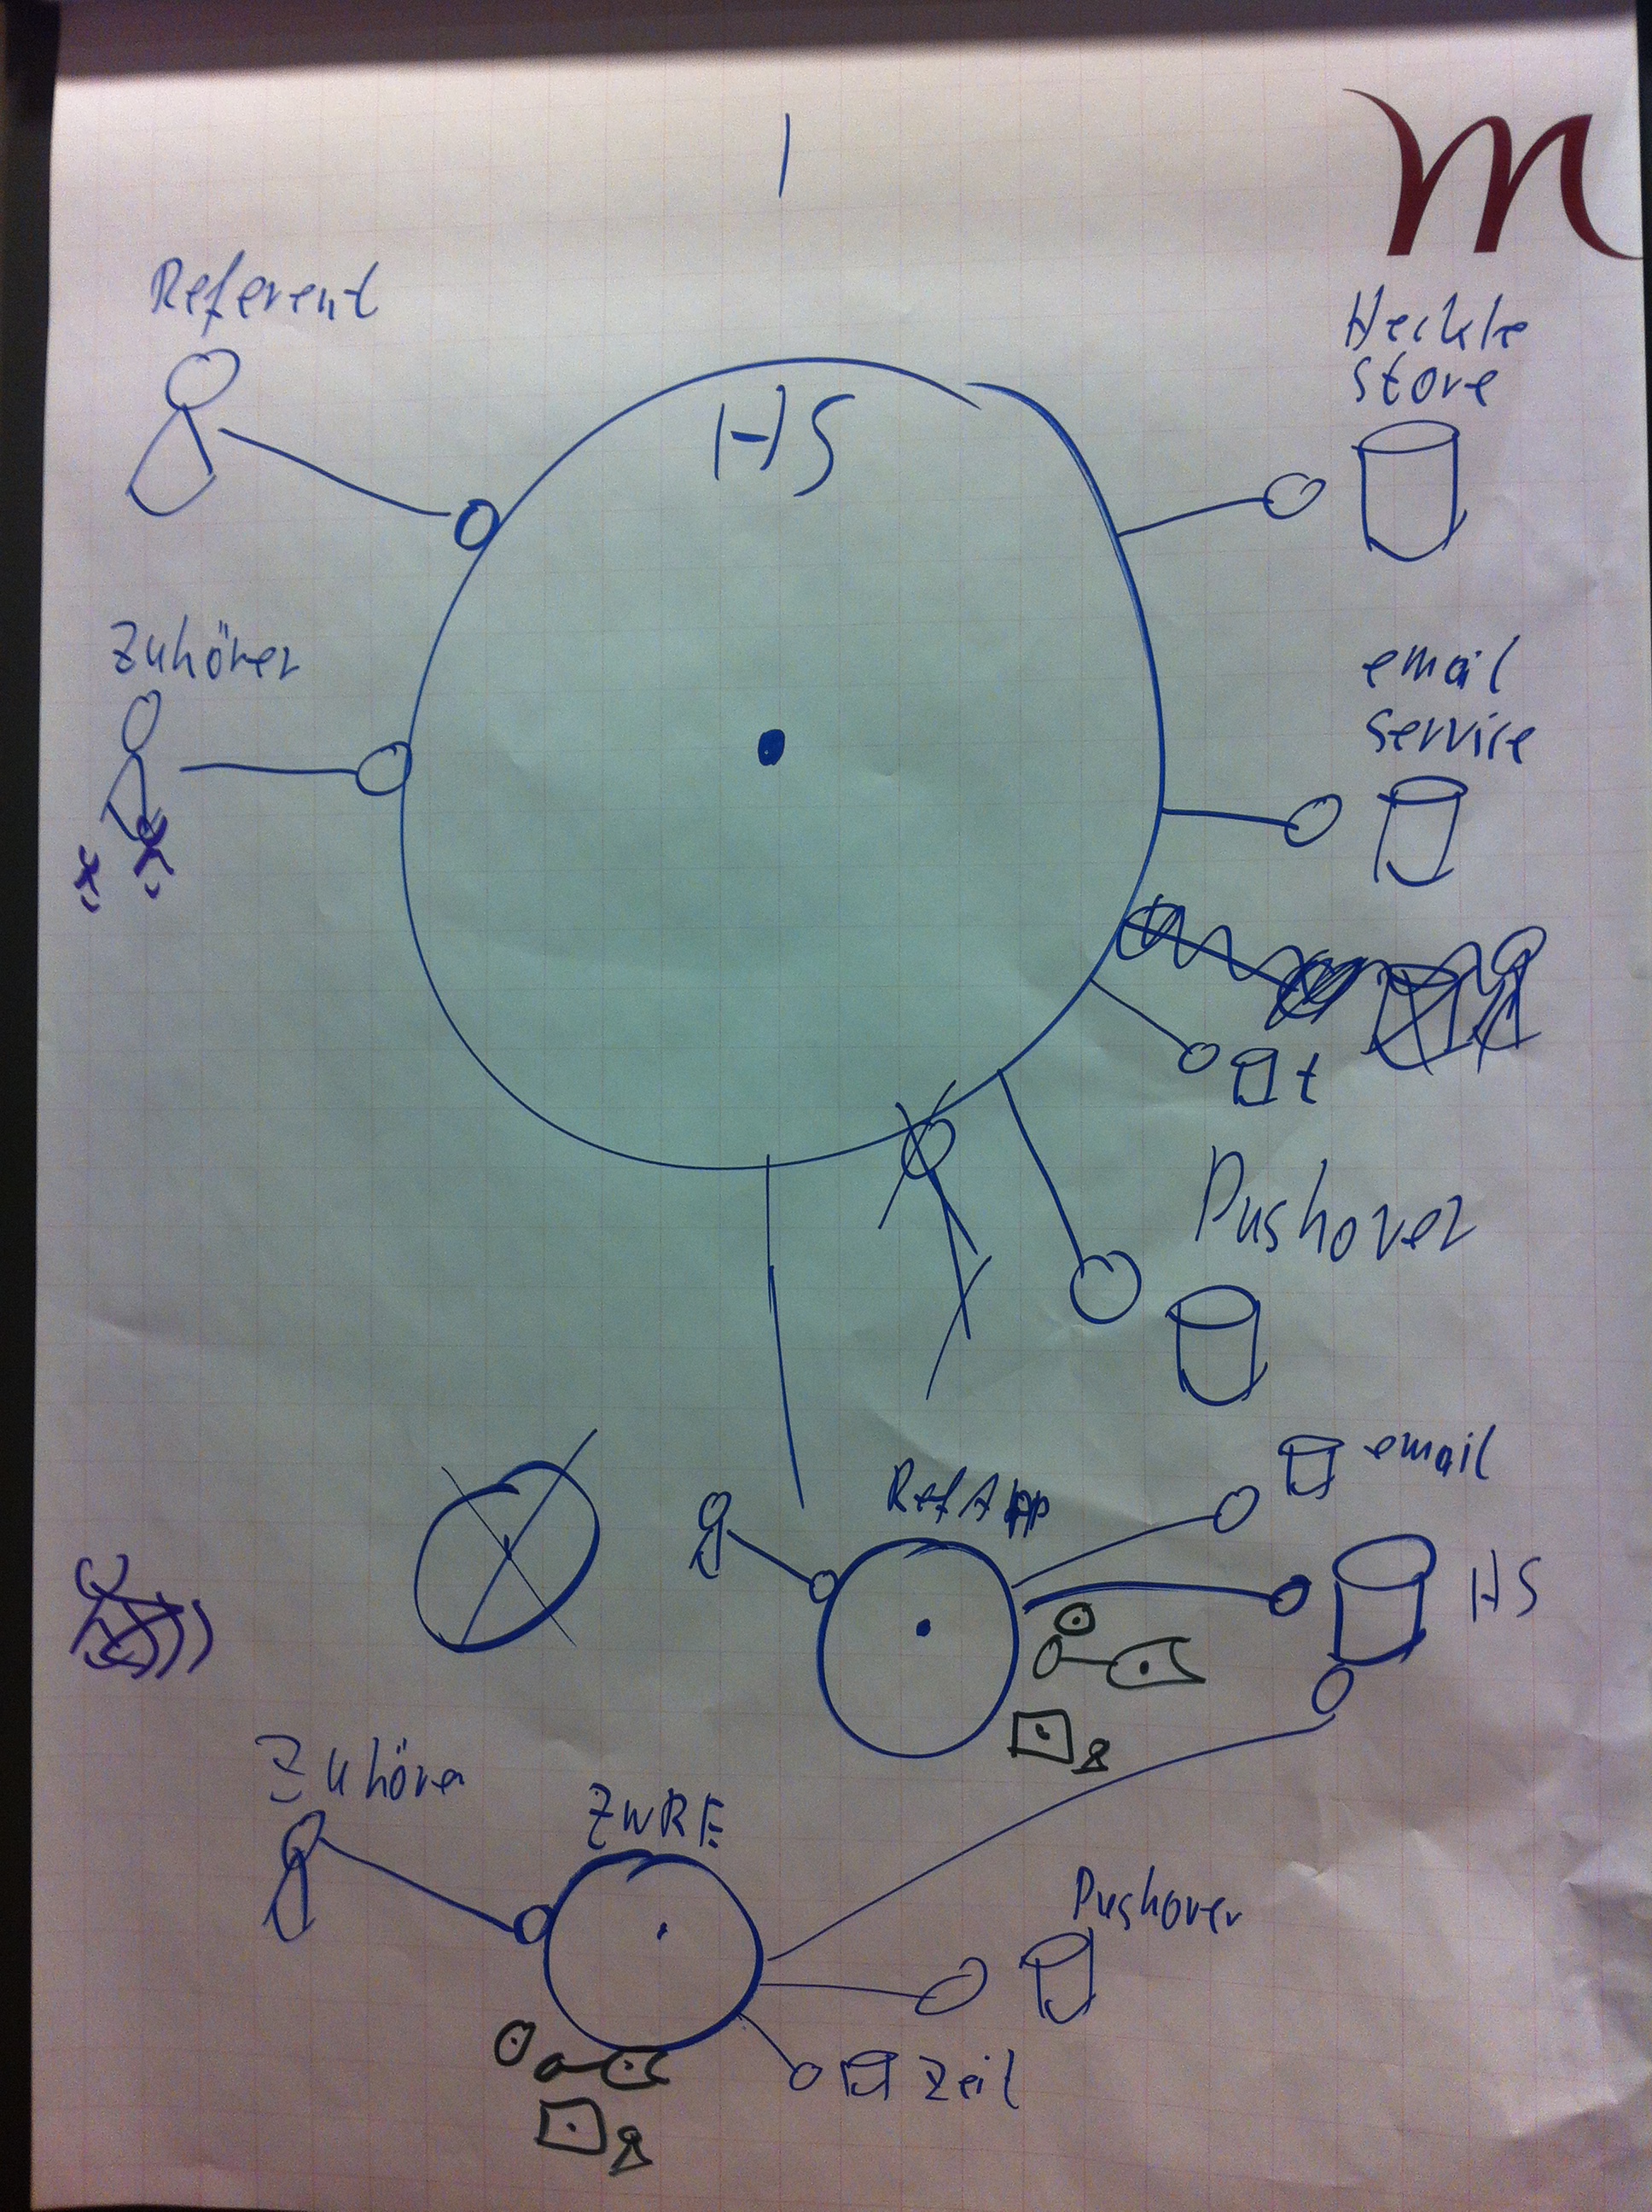 1
m
Referent
HS
Heckle
store
Zuhörer
email
service
t
Pushover
RefApp
email
HS
Zuhörer
ZWRE
Pushover
Zeit